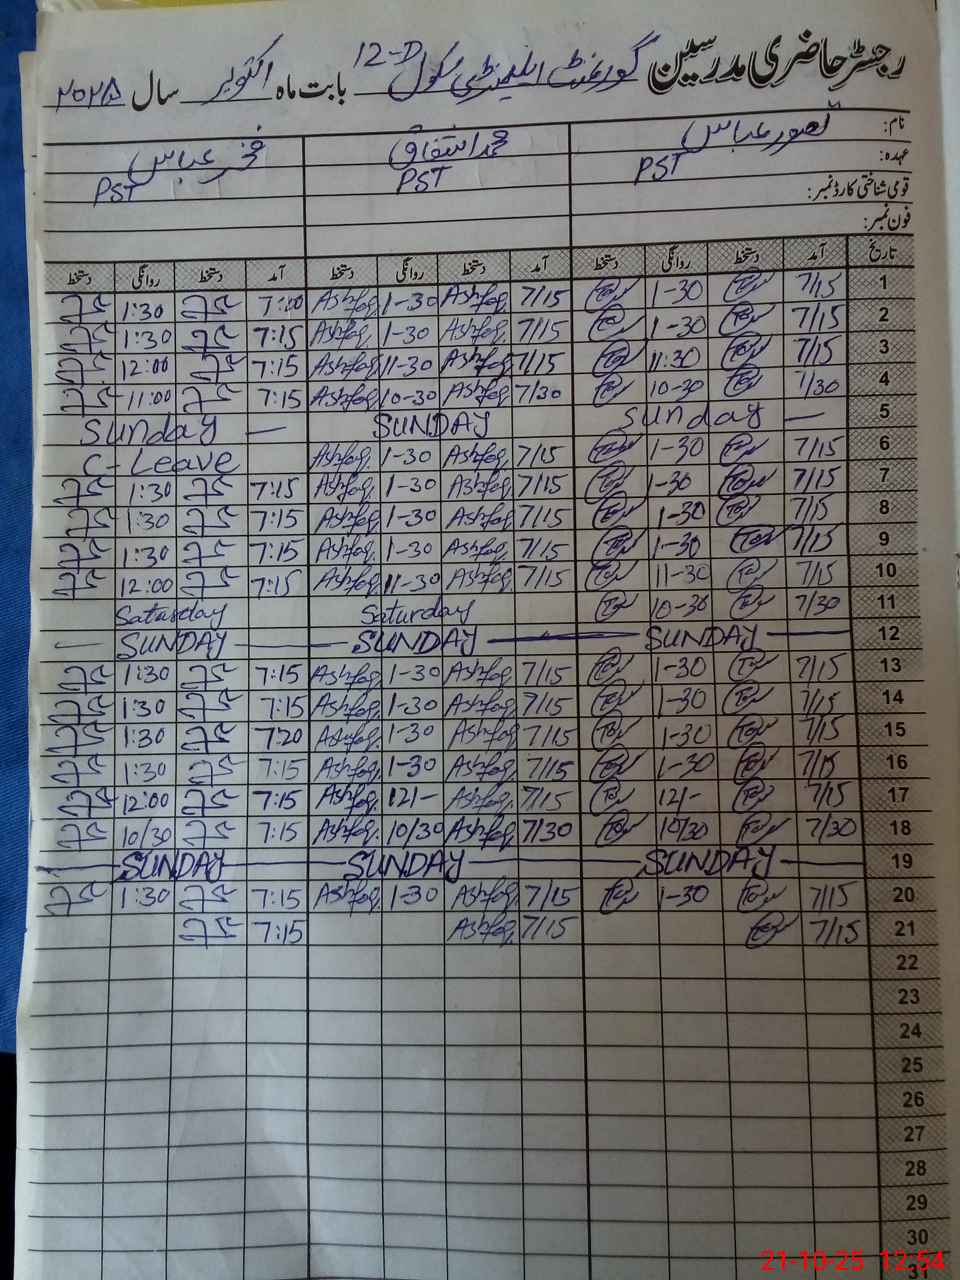 رجسٹر حاضری مدرسین گورنمنٹ ایلیمنٹری سکول 12-D بابت ماہ اکتوبر سال ۲۰۲۵
نام: تصور عباس محمد اشفاق فخر عباس
عہدہ: PST PST PST
قومی شناختی کارڈ نمبر:
فون نمبر:
تاریخ آمد دستخط روانگی دستخط آمد دستخط روانگی دستخط آمد دستخط روانگی دستخط
1 7/15 1-30 7/15 Ashfaq 1-30 Ashfaq 7:00 1:30
2 7/15 1-30 7/15 Ashfaq 1-30 Ashfaq 7:15 1:30
3 7/15 11:30 7/15 Ashfaq 11-30 Ashfaq 7:15 12:00
4 7/30 10-30 7/30 Ashfaq 10-30 Ashfaq 7:15 11:00
5 Sunday — SUNDAY Sunday —
6 7/15 1-30 7/15 Ashfaq 1-30 Ashfaq C-Leave
7 7/15 1-30 7/15 Ashfaq 1-30 Ashfaq 7:15 1:30
8 7/15 1-30 7/15 Ashfaq 1-30 Ashfaq 7:15 1:30
9 7/15 1-30 7/15 Ashfaq 1-30 Ashfaq 7:15 1:30
10 7/15 11-30 7/15 Ashfaq 11-30 Ashfaq 7:15 12:00
11 7/30 10-30 Saturday Saturday
12 SUNDAY SUNDAY SUNDAY
13 7/15 1-30 7/15 Ashfaq 1-30 Ashfaq 7:15 1:30
14 7/15 1-30 7/15 Ashfaq 1-30 Ashfaq 7:15 1:30
15 7/15 1-30 7/15 Ashfaq 1-30 Ashfaq 7:20 1:30
16 7/15 1-30 7/15 Ashfaq 1-30 Ashfaq 7:15 1:30
17 7/15 12/- 7/15 Ashfaq 12/- Ashfaq 7:15 12:00
18 7/30 10/30 7/30 Ashfaq 10/30 Ashfaq 7:15 10/30
19 SUNDAY SUNDAY SUNDAY
20 7/15 1-30 7/15 Ashfaq 1-30 Ashfaq 7:15 1:30
21 7/15 7/15 Ashfaq 7:15
22
23
24
25
26
27
28
29
30
31
21-10-25 12:54